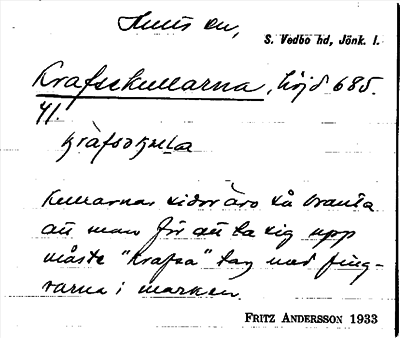 S. Vedbo hd, Jönk. l.
Krafsekullarna, höjd 685.
41.
Kullarnas sidor äro så branta
att man för att ta sig upp
måste "krafsa" tag med fing-
rarna i marken.
FRITZ ANDERSSON 1933